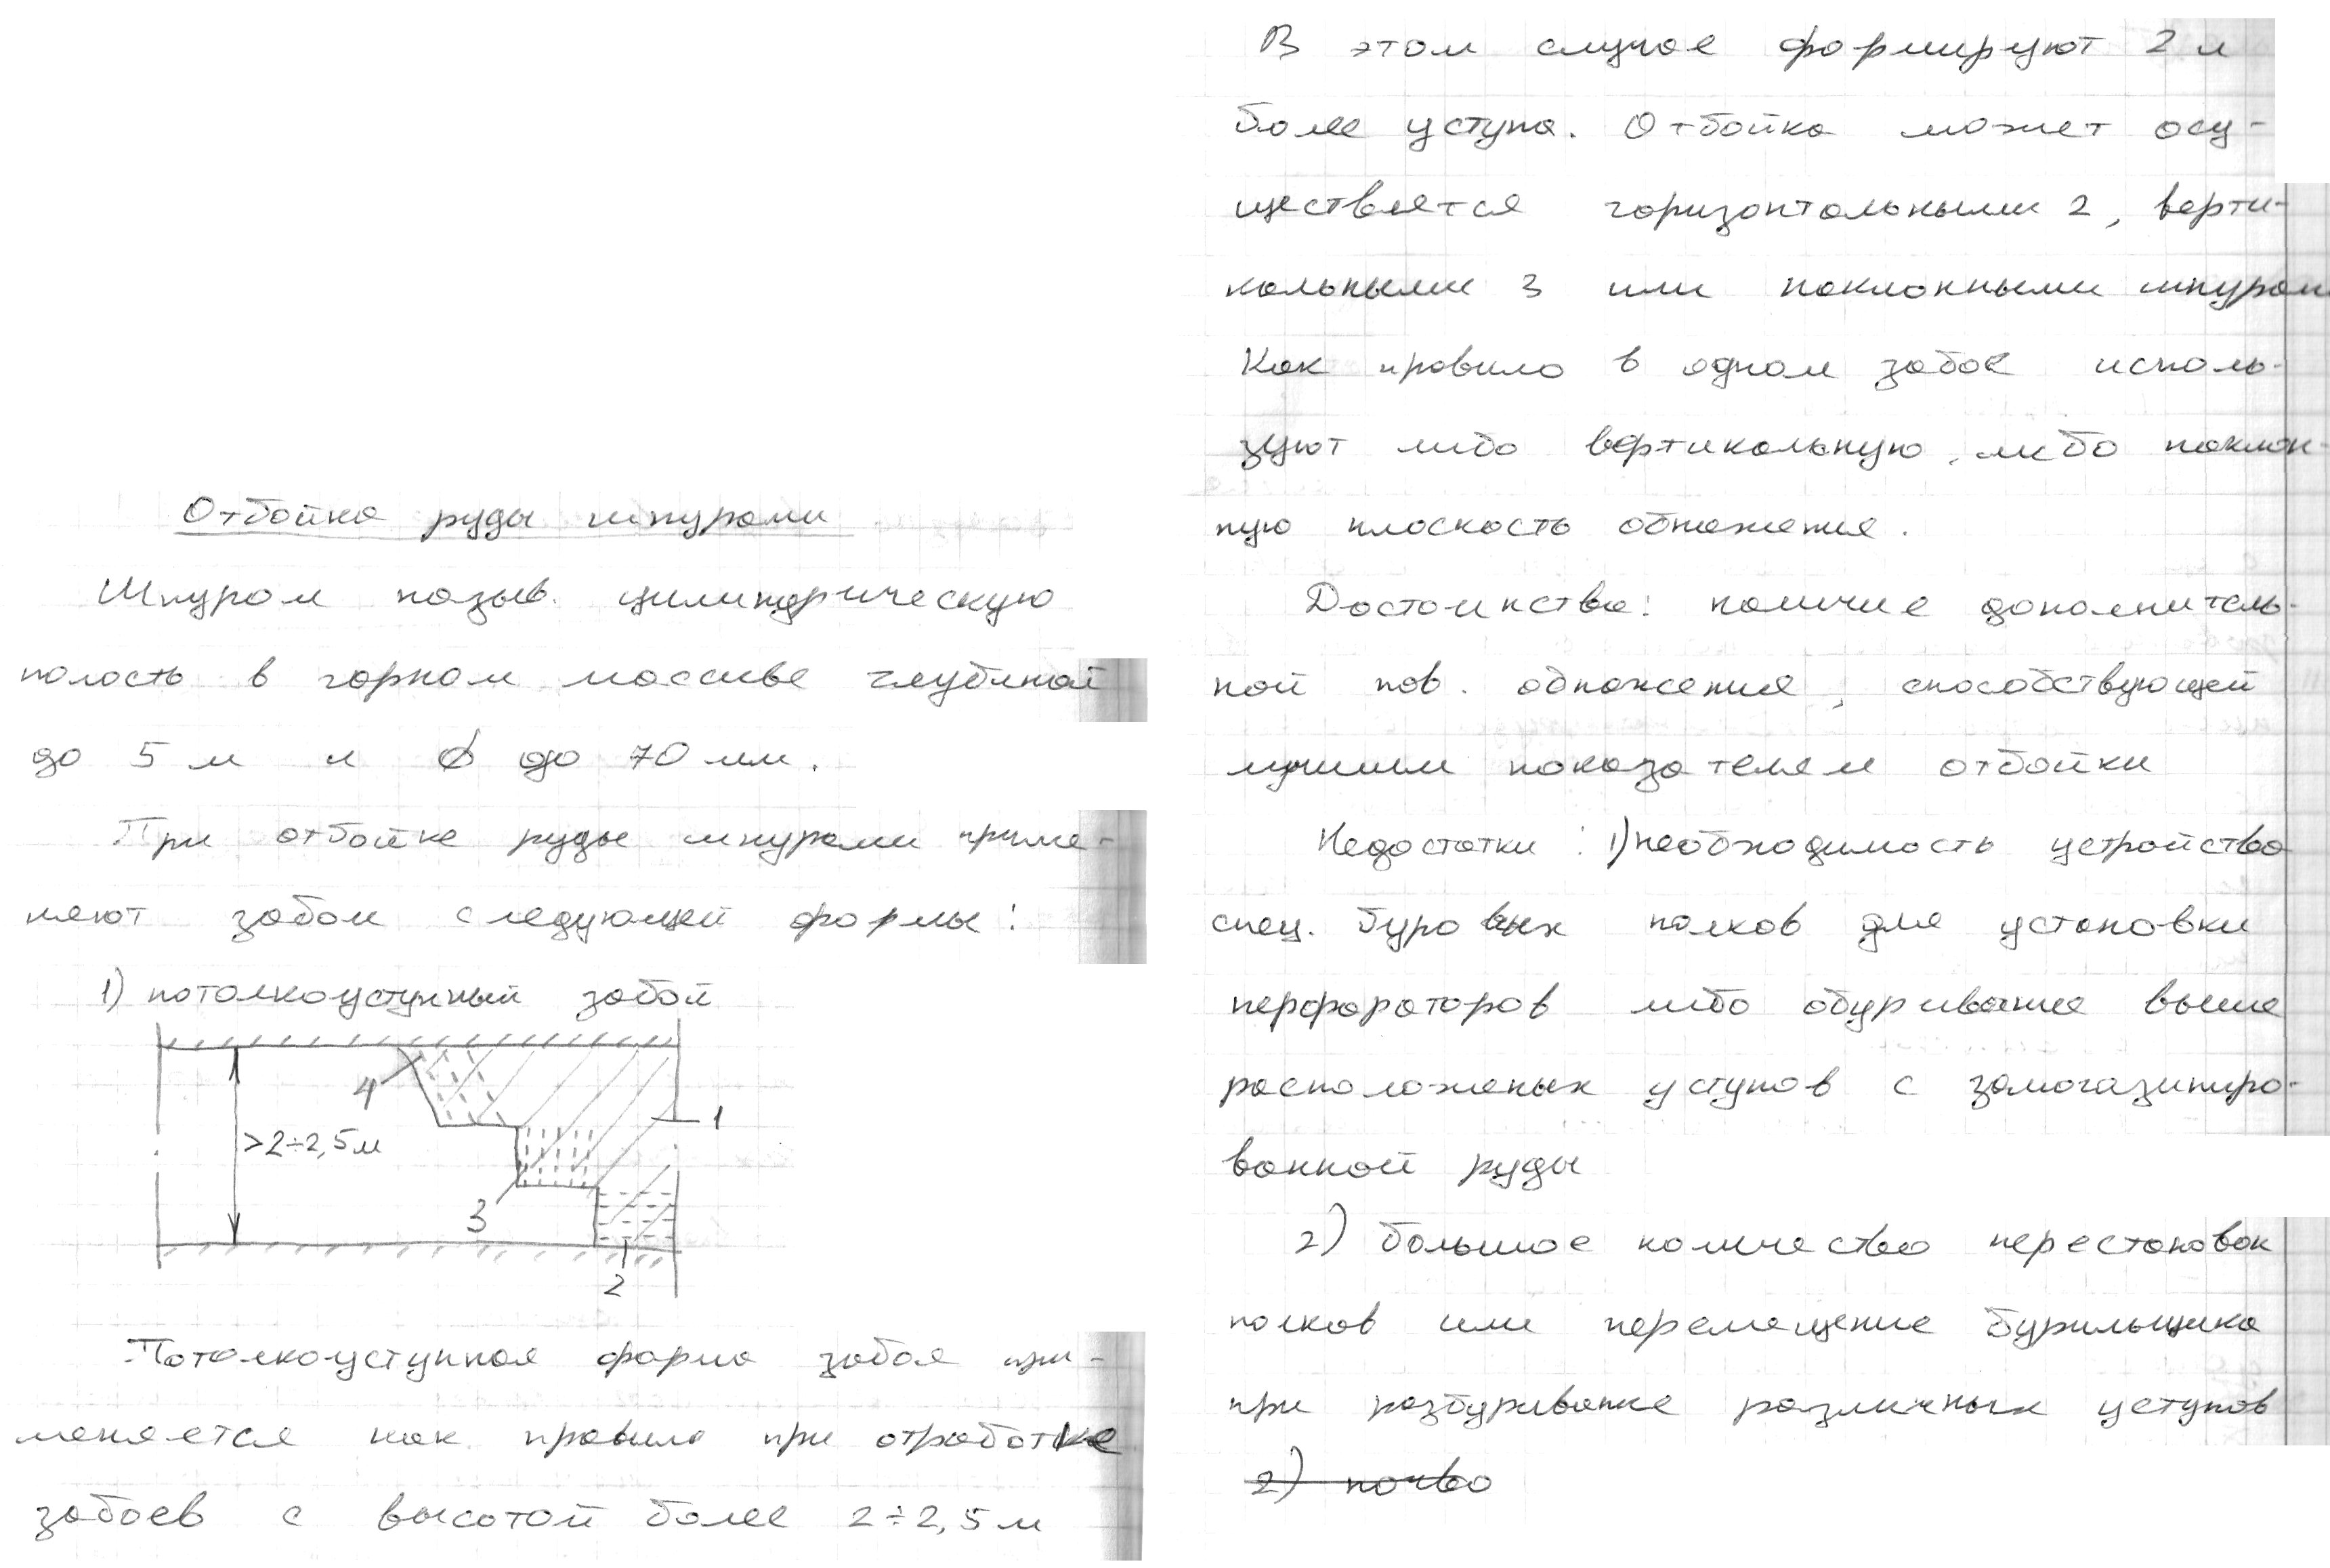 Отбойка руды шпурами
Шпуром назыв. цилиндрическую
полость в горном массиве глубиной
до 5 м и ⌀ до 70 мм.
При отбойке руды шпурами приме-
няют забои следующей формы:
1) потолкоуступный забой
4
>2÷2,5м
1
3
2
Потолкоуступная форма забоя при-
меняется как правило при отработке
забоев с высотой более 2÷2,5 м
В этом случае формируют 2 и
более уступа. Отбойка может осу-
ществляется горизонтальными 2, верти-
кальными 3 или наклонными шпурами
Как правило в одном забое исполь-
зуют либо вертикальную, либо наклон-
ную плоскость обнажения.
Достоинства: наличие дополнитель-
ной пов. обнажения, способствующей
лучшим показателям отбойки
Недостатки: 1) необходимость устройства
спец. буровых полков для установки
перфораторов либо обуривание выше
расположеных уступов с замагазиниро-
ванной руды
2) большое количество перестановок
полков или перемещение бурильщика
при разбуривание различных уступов
2) почво